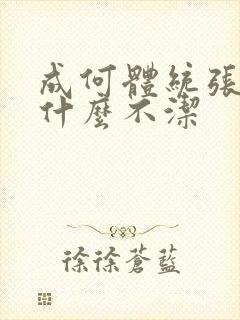 成何體統張
什麼不潔
徐徐蒼藍